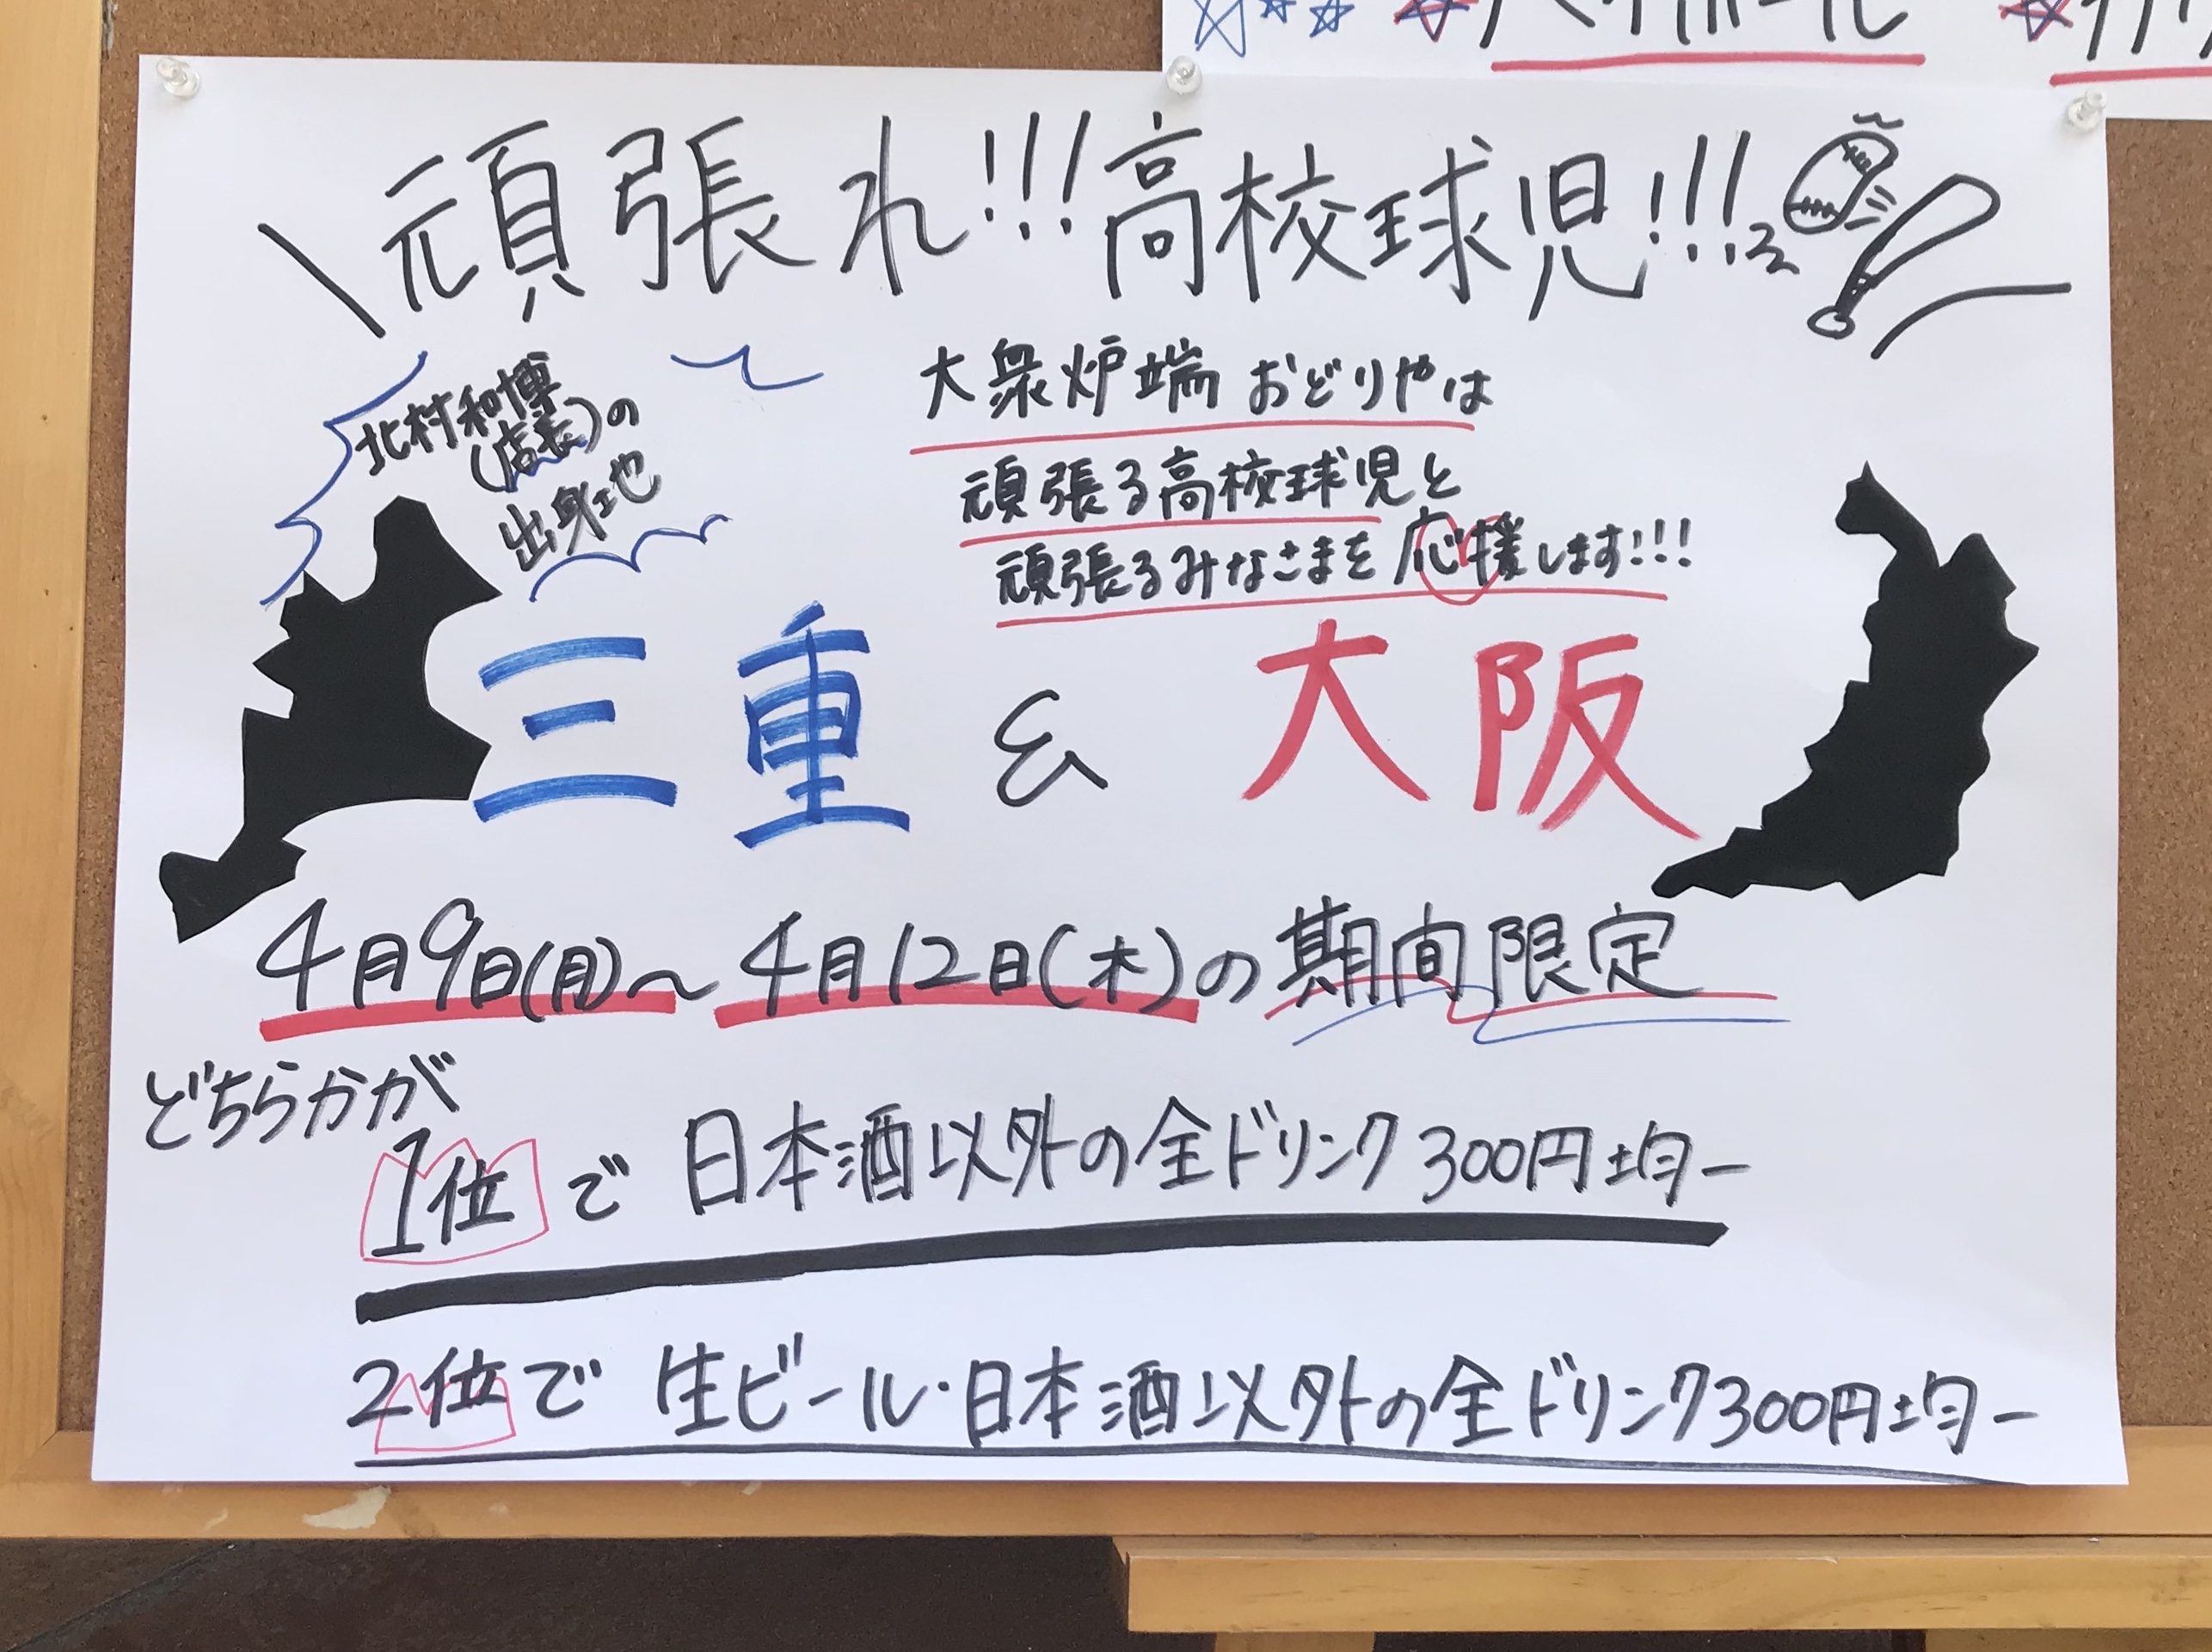 ハイボール
頑張れ!!!高校球児!!!
北村和博
(店長)の
出身地
大衆炉端 おどりやは
頑張る高校球児と
頑張るみなさまを応援します!!!
三重 & 大阪
4月9日(月)〜4月12日(木)の期間限定
どちらかが
1位で 日本酒以外の全ドリンク300円均一
2位で 生ビール・日本酒以外の全ドリンク300円均一